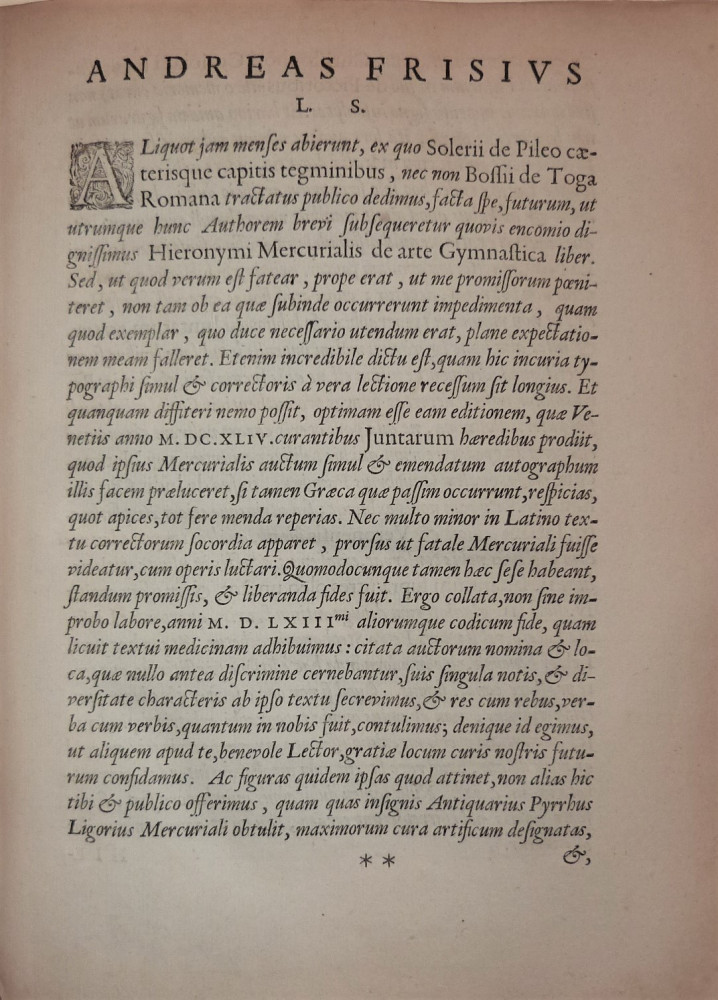 ANDREAS FRISIVS
L. S.
ALiquot jam menſes abierunt, ex quo Solerii de Pileo cæ-
teriſque capitis tegminibus, nec non Boſſii de Toga
Romana tractatus publico dedimus, facta ſpe, futurum, ut
utrumque hunc Authorem brevi ſubſequeretur quovis encomio di-
gniſſimus Hieronymi Mercurialis de arte Gymnaſtica liber.
Sed, ut quod verum eſt fatear, prope erat, ut me promiſſorum pœni-
teret, non tam ob ea quæ ſubinde occurrerunt impedimenta, quam
quod exemplar, quo duce neceſſario utendum erat, plane expectatio-
nem meam falleret. Etenim incredibile dictu eſt, quam hic incuria ty-
pographi ſimul & correctoris à vera lectione receſſum ſit longius. Et
quanquam diffiteri nemo poſſit, optimam eſſe eam editionem, quæ Ve-
netiis anno M. DC. XLIV. curantibus Juntarum hæredibus prodiit,
quod ipſius Mercurialis auctum ſimul & emendatum autographum
illis facem præluceret, ſi tamen Græca quæ paſſim occurrunt, reſpicias,
quot apices, tot fere menda reperias. Nec multo minor in Latino tex-
tu correctorum ſocordia apparet, prorſus ut fatale Mercuriali fuiſſe
videatur, cum operis luctari. Quomodocunque tamen hæc ſeſe habeant,
ſtandum promiſſis, & liberanda fides fuit. Ergo collata, non ſine im-
probo labore, anni M. D. LXIII<sup>mi</sup> aliorumque codicum fide, quam
licuit textui medicinam adhibuimus: citata auctorum nomina & lo-
ca, quæ nullo antea diſcrimine cernebantur, ſuis ſingula notis, & di-
verſitate characteris ab ipſo textu ſecrevimus, & res cum rebus, ver-
ba cum verbis, quantum in nobis fuit, contulimus; denique id egimus,
ut aliquem apud te, benevole Lector, gratiæ locum curis noſtris futu-
rum confidamus. Ac figuras quidem ipſas quod attinet, non alias hic
tibi & publico offerimus, quam quas inſignis Antiquarius Pyrrhus
Ligorius Mercuriali obtulit, maximorum cura artificum deſignatas,
** &,